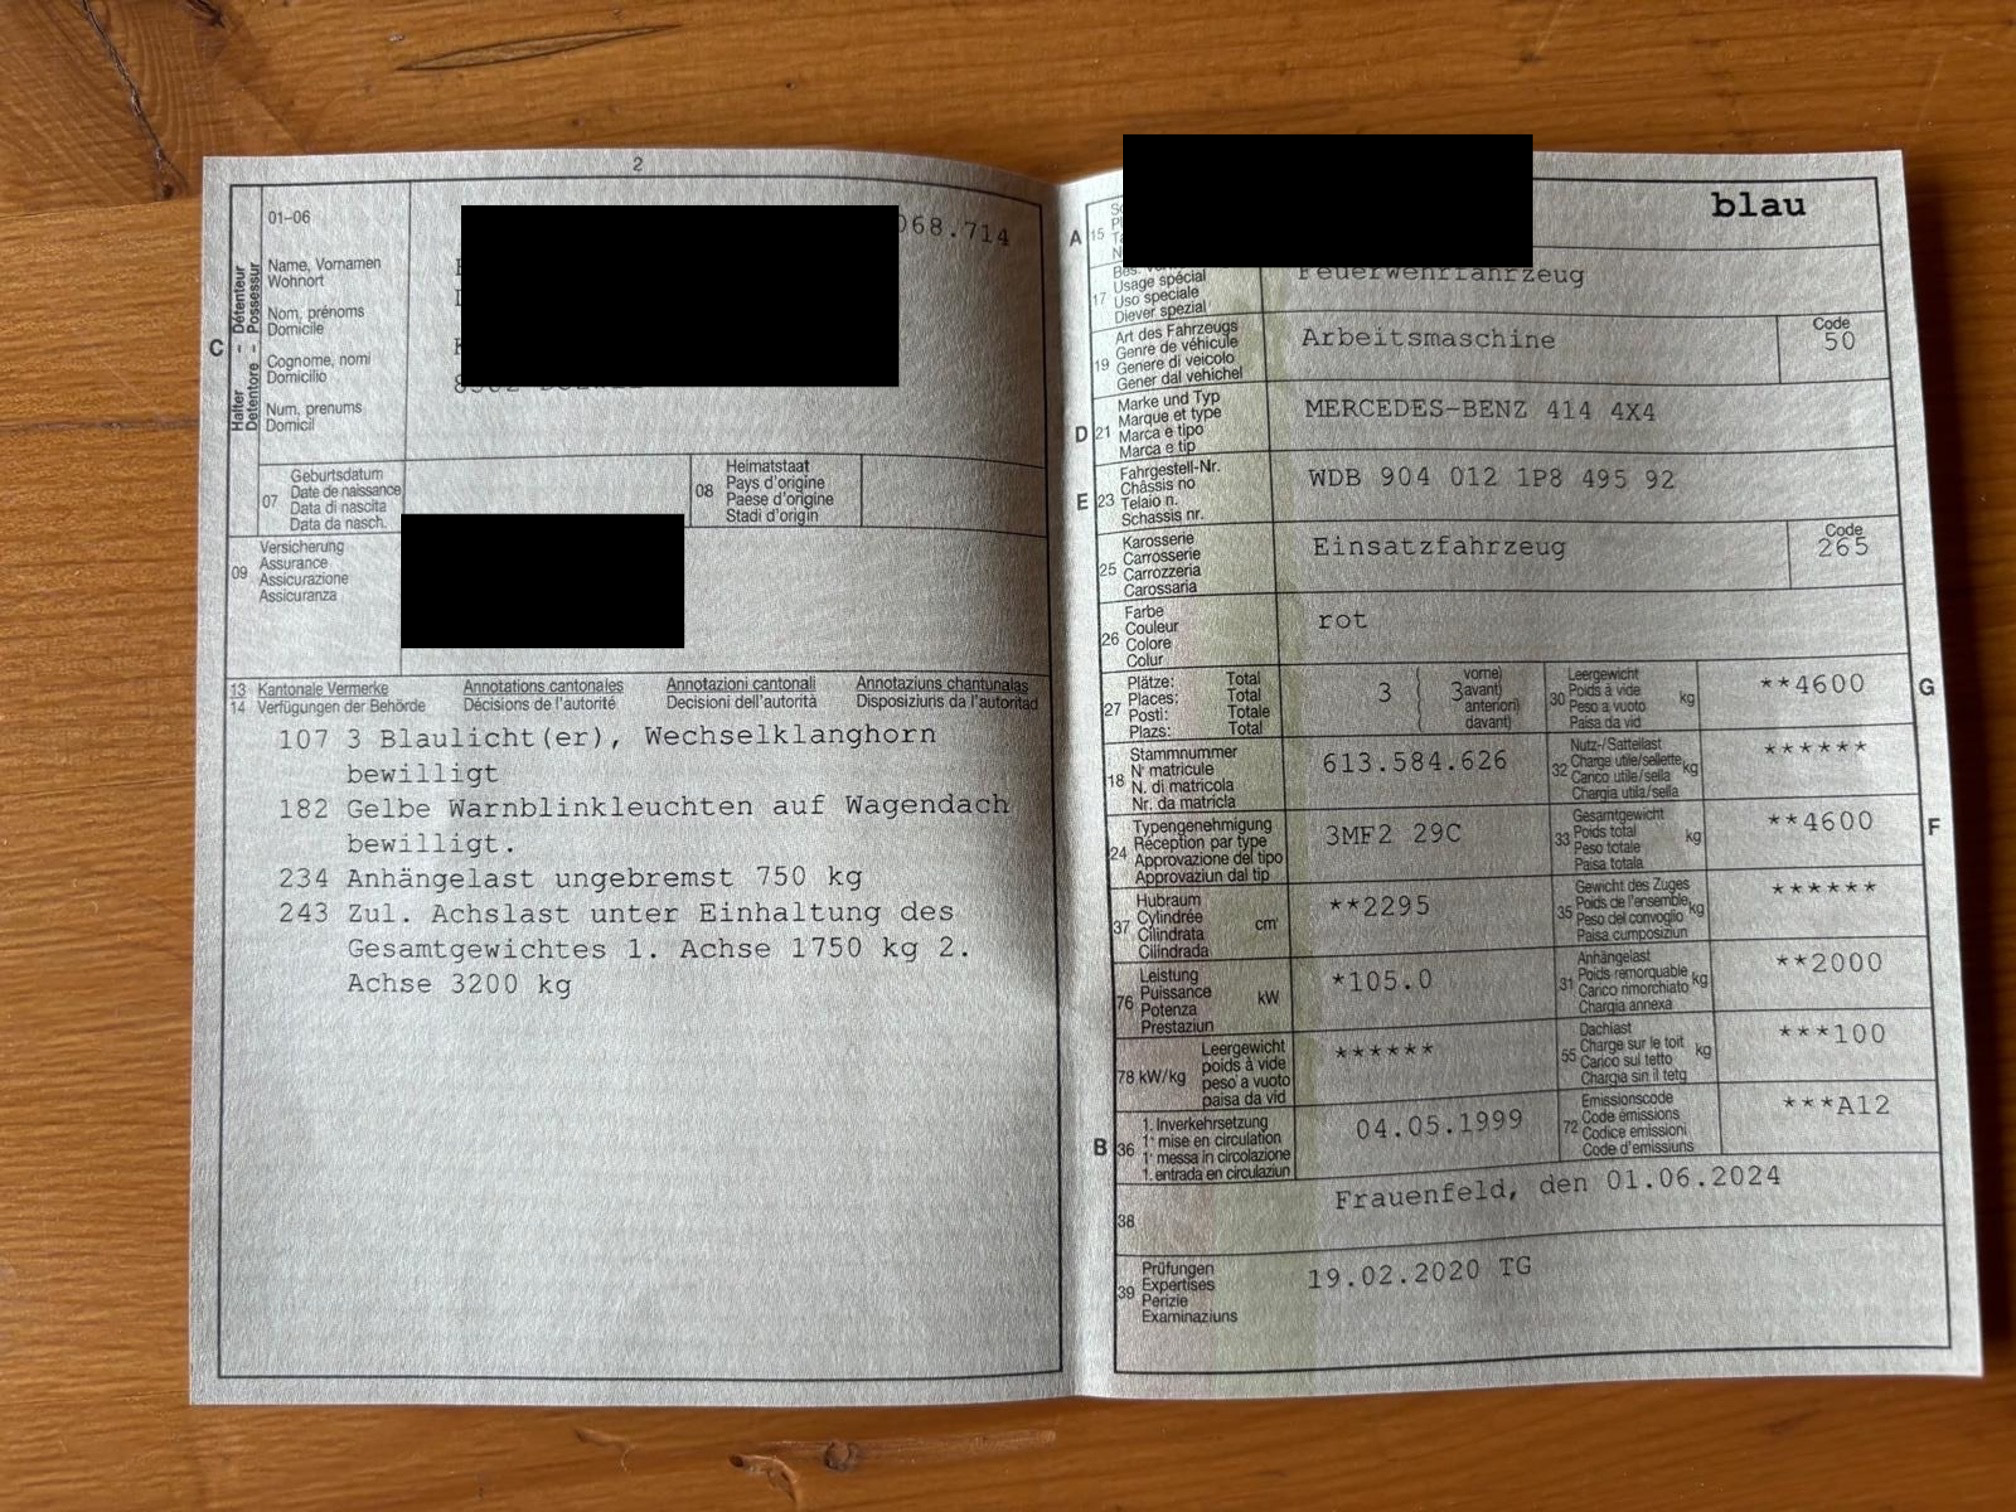 2
01-06
068.714
Name, Vornamen
Wohnort
Nom, prénoms
Domicile
Cognome, nomi
Domicilio
Num, prenums
Domicil
C
Halter - Détenteur
Detentore - Possessur
07
Geburtsdatum
Date de naissance
Data di nascita
Data da nasch.
08
Heimatstaat
Pays d'origine
Paese d'origine
Stadi d'origin
09
Versicherung
Assurance
Assicurazione
Assicuranza
13 Kantonale Vermerke Annotations cantonales Annotazioni cantonali Annotaziuns chantunalas
14 Verfügungen der Behörde Décisions de l'autorité Decisioni dell'autorità Disposiziuns da l'autoritad
107 3 Blaulicht(er), Wechselklanghorn
bewilligt
182 Gelbe Warnblinkleuchten auf Wagendach
bewilligt.
234 Anhängelast ungebremst 750 kg
243 Zul. Achslast unter Einhaltung des
Gesamtgewichtes 1. Achse 1750 kg 2.
Achse 3200 kg
blau
A 15
17
Usage spécial
Uso speciale
Diever spezial
Feuerwehrfahrzeug
19
Art des Fahrzeugs
Genre de véhicule
Genere di veicolo
Gener dal vehichel
Arbeitsmaschine
Code
50
D 21
Marke und Typ
Marque et type
Marca e tipo
Marca e tip
MERCEDES-BENZ 414 4X4
E 23
Fahrgestell-Nr.
Châssis no
Telaio n.
Schassis nr.
WDB 904 012 1P8 495 92
25
Karosserie
Carrosserie
Carrozzeria
Carossaria
Einsatzfahrzeug
Code
265
26
Farbe
Couleur
Colore
Colur
rot
27
Plätze: Total
Places: Total
Posti: Totale
Plazs: Total
3
3
vorne)
avant)
anteriori)
davant)
30
Leergewicht
Poids à vide
Peso a vuoto
Paisa da vid
kg
**4600
G
18
Stammnummer
N° matricule
N. di matricola
Nr. da matricla
613.584.626
32
Nutz-/Sattellast
Charge utile/sellette
Carico utile/sella
Chargia utila/sella
kg
******
24
Typengenehmigung
Réception par type
Approvazione del tipo
Approvaziun dal tip
3MF2 29C
33
Gesamtgewicht
Poids total
Peso totale
Paisa totala
kg
**4600
F
37
Hubraum
Cylindrée
Cilindrata
Cilindrada
cm³
**2295
35
Gewicht des Zuges
Poids de l'ensemble
Peso del convoglio
Paisa cumposiziun
kg
******
76
Leistung
Puissance
Potenza
Prestaziun
kW
*105.0
31
Anhängelast
Poids remorquable
Carico rimorchiato
Chargia annexa
kg
**2000
78 kW/kg
Leergewicht
poids à vide
peso a vuoto
paisa da vid
******
55
Dachlast
Charge sur le toit
Carico sul tetto
Chargia sin il tetg
kg
***100
B 36
1. Inverkehrsetzung
1ʳᵉ mise en circulation
1ª messa in circolazione
1. entrada en circulaziun
04.05.1999
72
Emissionscode
Code émissions
Codice emissioni
Code d'emissiuns
***A12
38
Frauenfeld, den 01.06.2024
39
Prüfungen
Expertises
Perizie
Examinaziuns
19.02.2020 TG